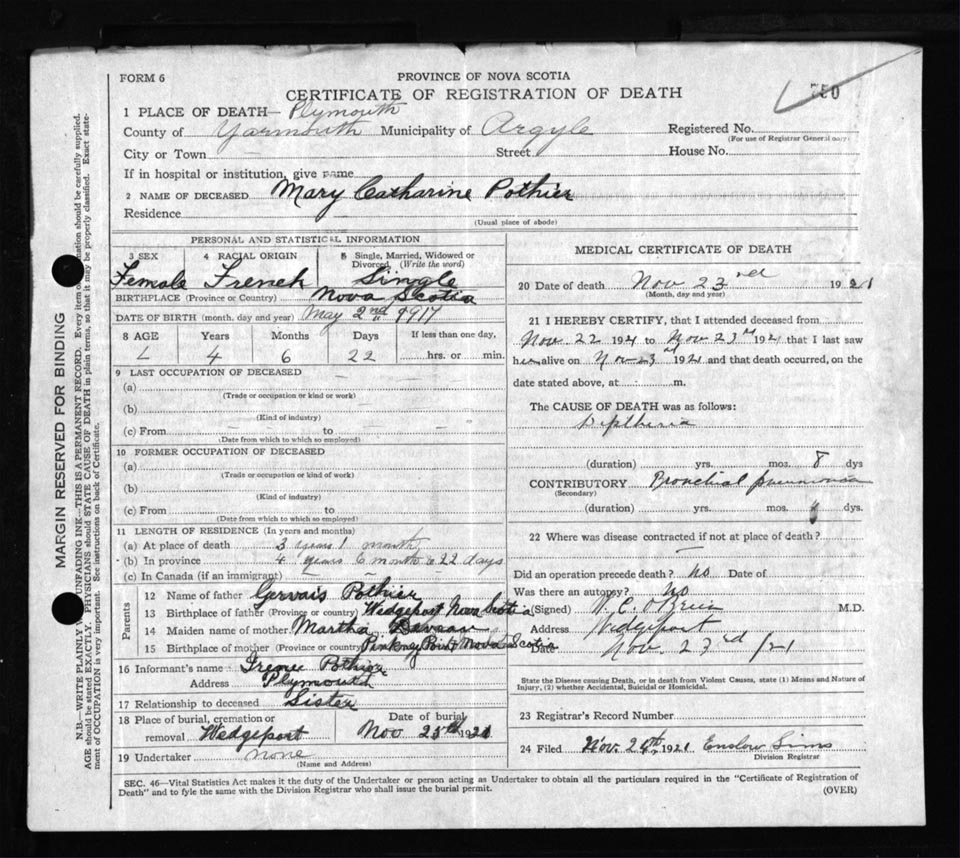 FORM 6
PROVINCE OF NOVA SCOTIA
CERTIFICATE OF REGISTRATION OF DEATH
1 PLACE OF DEATH— Plymouth
County of Yarmouth Municipality of Argyle Registered No.
(For use of Registrar General only)
City or Town Street House No.
If in hospital or institution, give name
2 NAME OF DECEASED Mary Catharine Pothier
Residence
(Usual place of abode)
PERSONAL AND STATISTICAL INFORMATION
3 SEX 4 RACIAL ORIGIN 5 Single, Married, Widowed or
Divorced (Write the word)
Female French Single
BIRTHPLACE (Province or Country) Nova Scotia
DATE OF BIRTH (month, day and year) May 2nd 1917
8 AGE Years Months Days If less than one day,
4 6 22 hrs. or min.
9 LAST OCCUPATION OF DECEASED
(a)
(Trade or occupation or kind or work)
(b)
(Kind of industry)
(c) From to
(Date from which to which so employed)
10 FORMER OCCUPATION OF DECEASED
(a)
(Trade or occupation or kind of work)
(b)
(Kind of industry)
(c) From to
(Date from which to which so employed)
11 LENGTH OF RESIDENCE (In years and months)
(a) At place of death 3 years 1 month
(b) In province 4 years 6 months 22 days
(c) In Canada (if an immigrant)
Parents
12 Name of father Gervais Pothier
13 Birthplace of father (Province or country) Wedgeport Nova Scotia
14 Maiden name of mother Martha
15 Birthplace of mother (Province or country) Pinkney Point Nova Scotia
16 Informant's name Irenee Pothier
Address Plymouth
17 Relationship to deceased Sister
18 Place of burial, cremation or Date of burial
removal Wedgeport Nov 25th 1921
19 Undertaker none
(Name and Address)
MEDICAL CERTIFICATE OF DEATH
20 Date of death Nov 23rd 1921
(Month, day and year)
21 I HEREBY CERTIFY, that I attended deceased from
Nov. 22 1921 to Nov 23rd 1921 that I last saw
her alive on Nov 23rd 1921 and that death occurred, on the
date stated above, at m.
The CAUSE OF DEATH was as follows:
Diptheria
(duration) yrs. mos. 8 dys
CONTRIBUTORY Bronchial pneumonia
(Secondary)
(duration) yrs. mos. dys.
22 Where was disease contracted if not at place of death?
Did an operation precede death? No Date of
Was there an autopsy? No
(Signed) O'Brien M.D.
Address Wedgeport
Date Nov. 23rd /21
State the Disease causing Death, or in death from Violent Causes, state (1) Means and Nature of
Injury, (2) whether Accidental, Suicidal or Homicidal.
23 Registrar's Record Number
24 Filed Nov. 24th 1921 Enslow Sims
Division Registrar
SEC. 46—Vital Statistics Act makes it the duty of the Undertaker or person acting as Undertaker to obtain all the particulars required in the "Certificate of Registration of
Death" and to fyle the same with the Division Registrar who shall issue the burial permit. (OVER)
MARGIN RESERVED FOR BINDING
N.B.—WRITE PLAINLY UNFADING INK—THIS IS A PERMANENT RECORD. Every item of information should be carefully supplied.
AGE should be stated EXACTLY. PHYSICIANS should STATE CAUSE OF DEATH in plain terms, so that it may be properly classified. Exact state-
ment of OCCUPATION is very important. See instructions on back of Certificate.